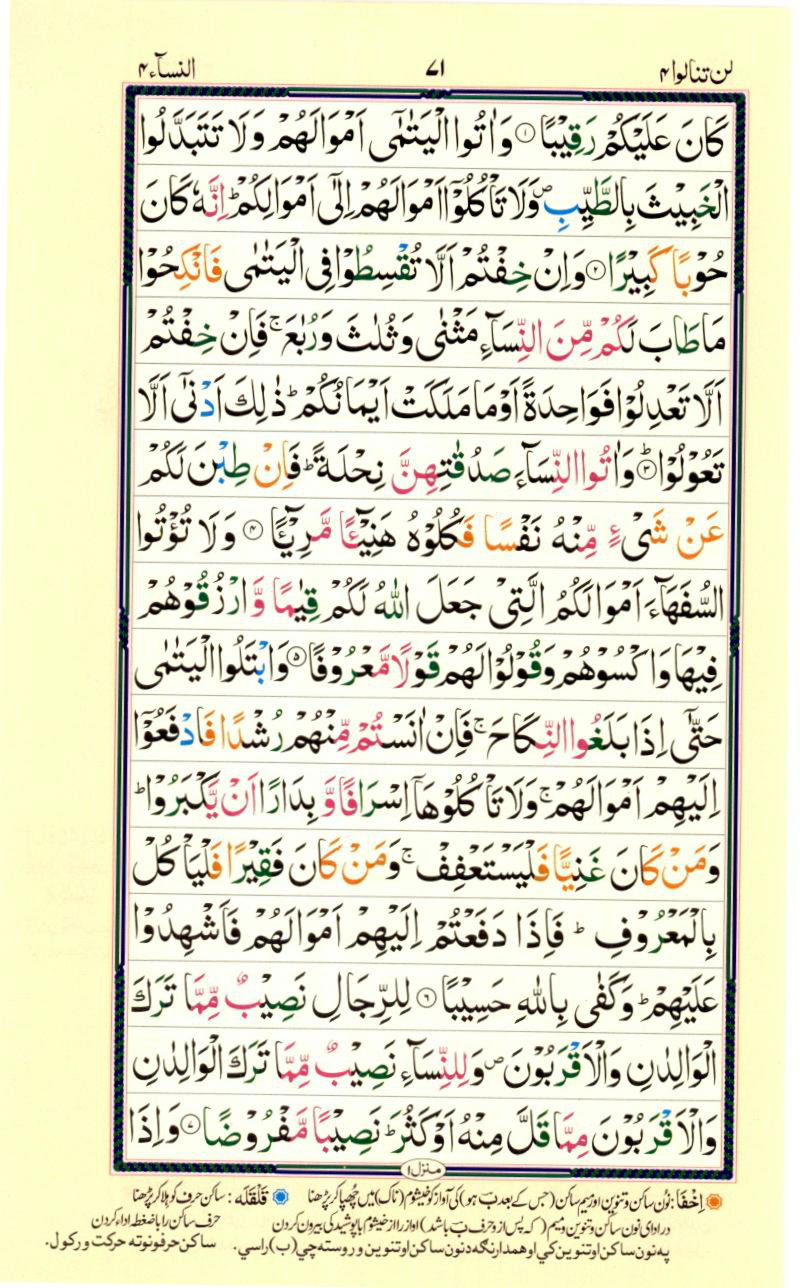 لن تنالوا ۴ ۷۱ النسآء ۴
كَانَ عَلَيْكُمْ رَقِيْبًا ۝۱ وَاٰتُوا الْيَتٰمٰٓى اَمْوَالَهُمْ وَلَا تَتَبَدَّلُوا
الْخَبِيْثَ بِالطَّيِّبِ ۪ وَلَا تَاْكُلُوْٓا اَمْوَالَهُمْ اِلٰٓى اَمْوَالِكُمْ ؕ اِنَّهٗ كَانَ
حُوْبًا كَبِيْرًا ۝۲ وَاِنْ خِفْتُمْ اَلَّا تُقْسِطُوْا فِى الْيَتٰمٰى فَانْكِحُوْا
مَا طَابَ لَكُمْ مِّنَ النِّسَآءِ مَثْنٰى وَثُلٰثَ وَرُبٰعَ ۚ فَاِنْ خِفْتُمْ
اَلَّا تَعْدِلُوْا فَوَاحِدَةً اَوْ مَا مَلَكَتْ اَيْمَانُكُمْ ؕ ذٰلِكَ اَدْنٰٓى اَلَّا
تَعُوْلُوْا ۝۳ؕ وَاٰتُوا النِّسَآءَ صَدُقٰتِهِنَّ نِحْلَةً ؕ فَاِنْ طِبْنَ لَكُمْ
عَنْ شَىْءٍ مِّنْهُ نَفْسًا فَكُلُوْهُ هَنِيْٓـًٔا مَّرِيْٓـًٔا ۝۴ وَلَا تُؤْتُوا
السُّفَهَآءَ اَمْوَالَكُمُ الَّتِىْ جَعَلَ اللّٰهُ لَكُمْ قِيٰمًا وَّارْزُقُوْهُمْ
فِيْهَا وَاكْسُوْهُمْ وَقُوْلُوْا لَهُمْ قَوْلًا مَّعْرُوْفًا ۝۵ وَابْتَلُوا الْيَتٰمٰى
حَتّٰٓى اِذَا بَلَغُوا النِّكَاحَ ۚ فَاِنْ اٰنَسْتُمْ مِّنْهُمْ رُشْدًا فَادْفَعُوْٓا
اِلَيْهِمْ اَمْوَالَهُمْ ۚ وَلَا تَاْكُلُوْهَآ اِسْرَافًا وَّبِدَارًا اَنْ يَّكْبَرُوْا ؕ
وَمَنْ كَانَ غَنِيًّا فَلْيَسْتَعْفِفْ ۚ وَمَنْ كَانَ فَقِيْرًا فَلْيَاْكُلْ
بِالْمَعْرُوْفِ ؕ فَاِذَا دَفَعْتُمْ اِلَيْهِمْ اَمْوَالَهُمْ فَاَشْهِدُوْا
عَلَيْهِمْ ؕ وَكَفٰى بِاللّٰهِ حَسِيْبًا ۝۶ لِلرِّجَالِ نَصِيْبٌ مِّمَّا تَرَكَ
الْوَالِدٰنِ وَالْاَقْرَبُوْنَ ۪ وَلِلنِّسَآءِ نَصِيْبٌ مِّمَّا تَرَكَ الْوَالِدٰنِ
وَالْاَقْرَبُوْنَ مِمَّا قَلَّ مِنْهُ اَوْ كَثُرَ ؕ نَصِيْبًا مَّفْرُوْضًا ۝۷ وَاِذَا
منزل۱
اِخْفَا: نُون ساکن و تنوین اور میم ساکن (جس کے بعد بَ ہو) کی آواز کو خیشوم (ناک) میں چھپا کر پڑھنا قَلْقَلَه: ساکن حرف کو ہلا کر پڑھنا
در ادای نون ساکن و تنوین و میم (که پس از و حرف بَ باشد) اواز را از خیشوم با پوشیدگی بیرون کردن حرف ساکن را با ضغطه اداء کردن
په نون ساکن او تنوین کي او همدارنگه د نون ساکن او تنوین و روسته چي (ب) راسي. ساکن حرفونو ته حرکت ورکول.